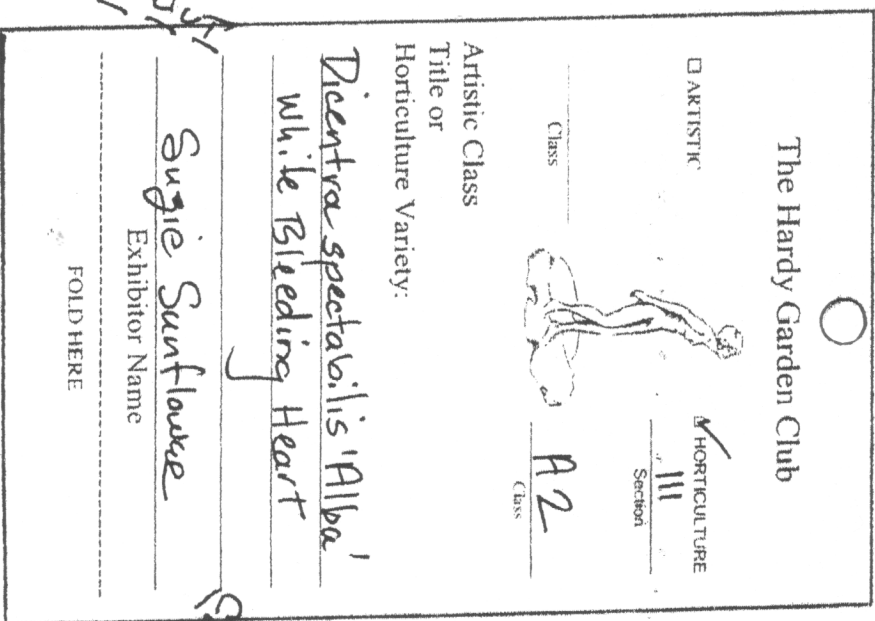 The Hardy Garden Club
☐ ARTISTIC
☑ HORTICULTURE
III
Section
Class
A2
Class
Artistic Class
Title or
Horticulture Variety:
Dicentra spectabilis 'Alba'
White Bleeding Heart
Suzie Sunflower
Exhibitor Name
FOLD HERE